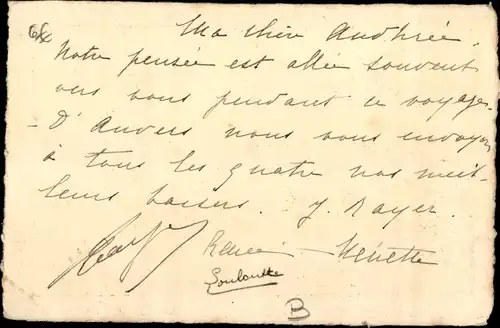 Ma chère Andhrée.
Notre pensée est allée souvent
vers vous pendant ce voyage.
- D'Anvers nous vous envoyons
à tous les quatre nos meil-
leurs baisers. J. Rayer.
Renée - Nénette
Louloutte
B